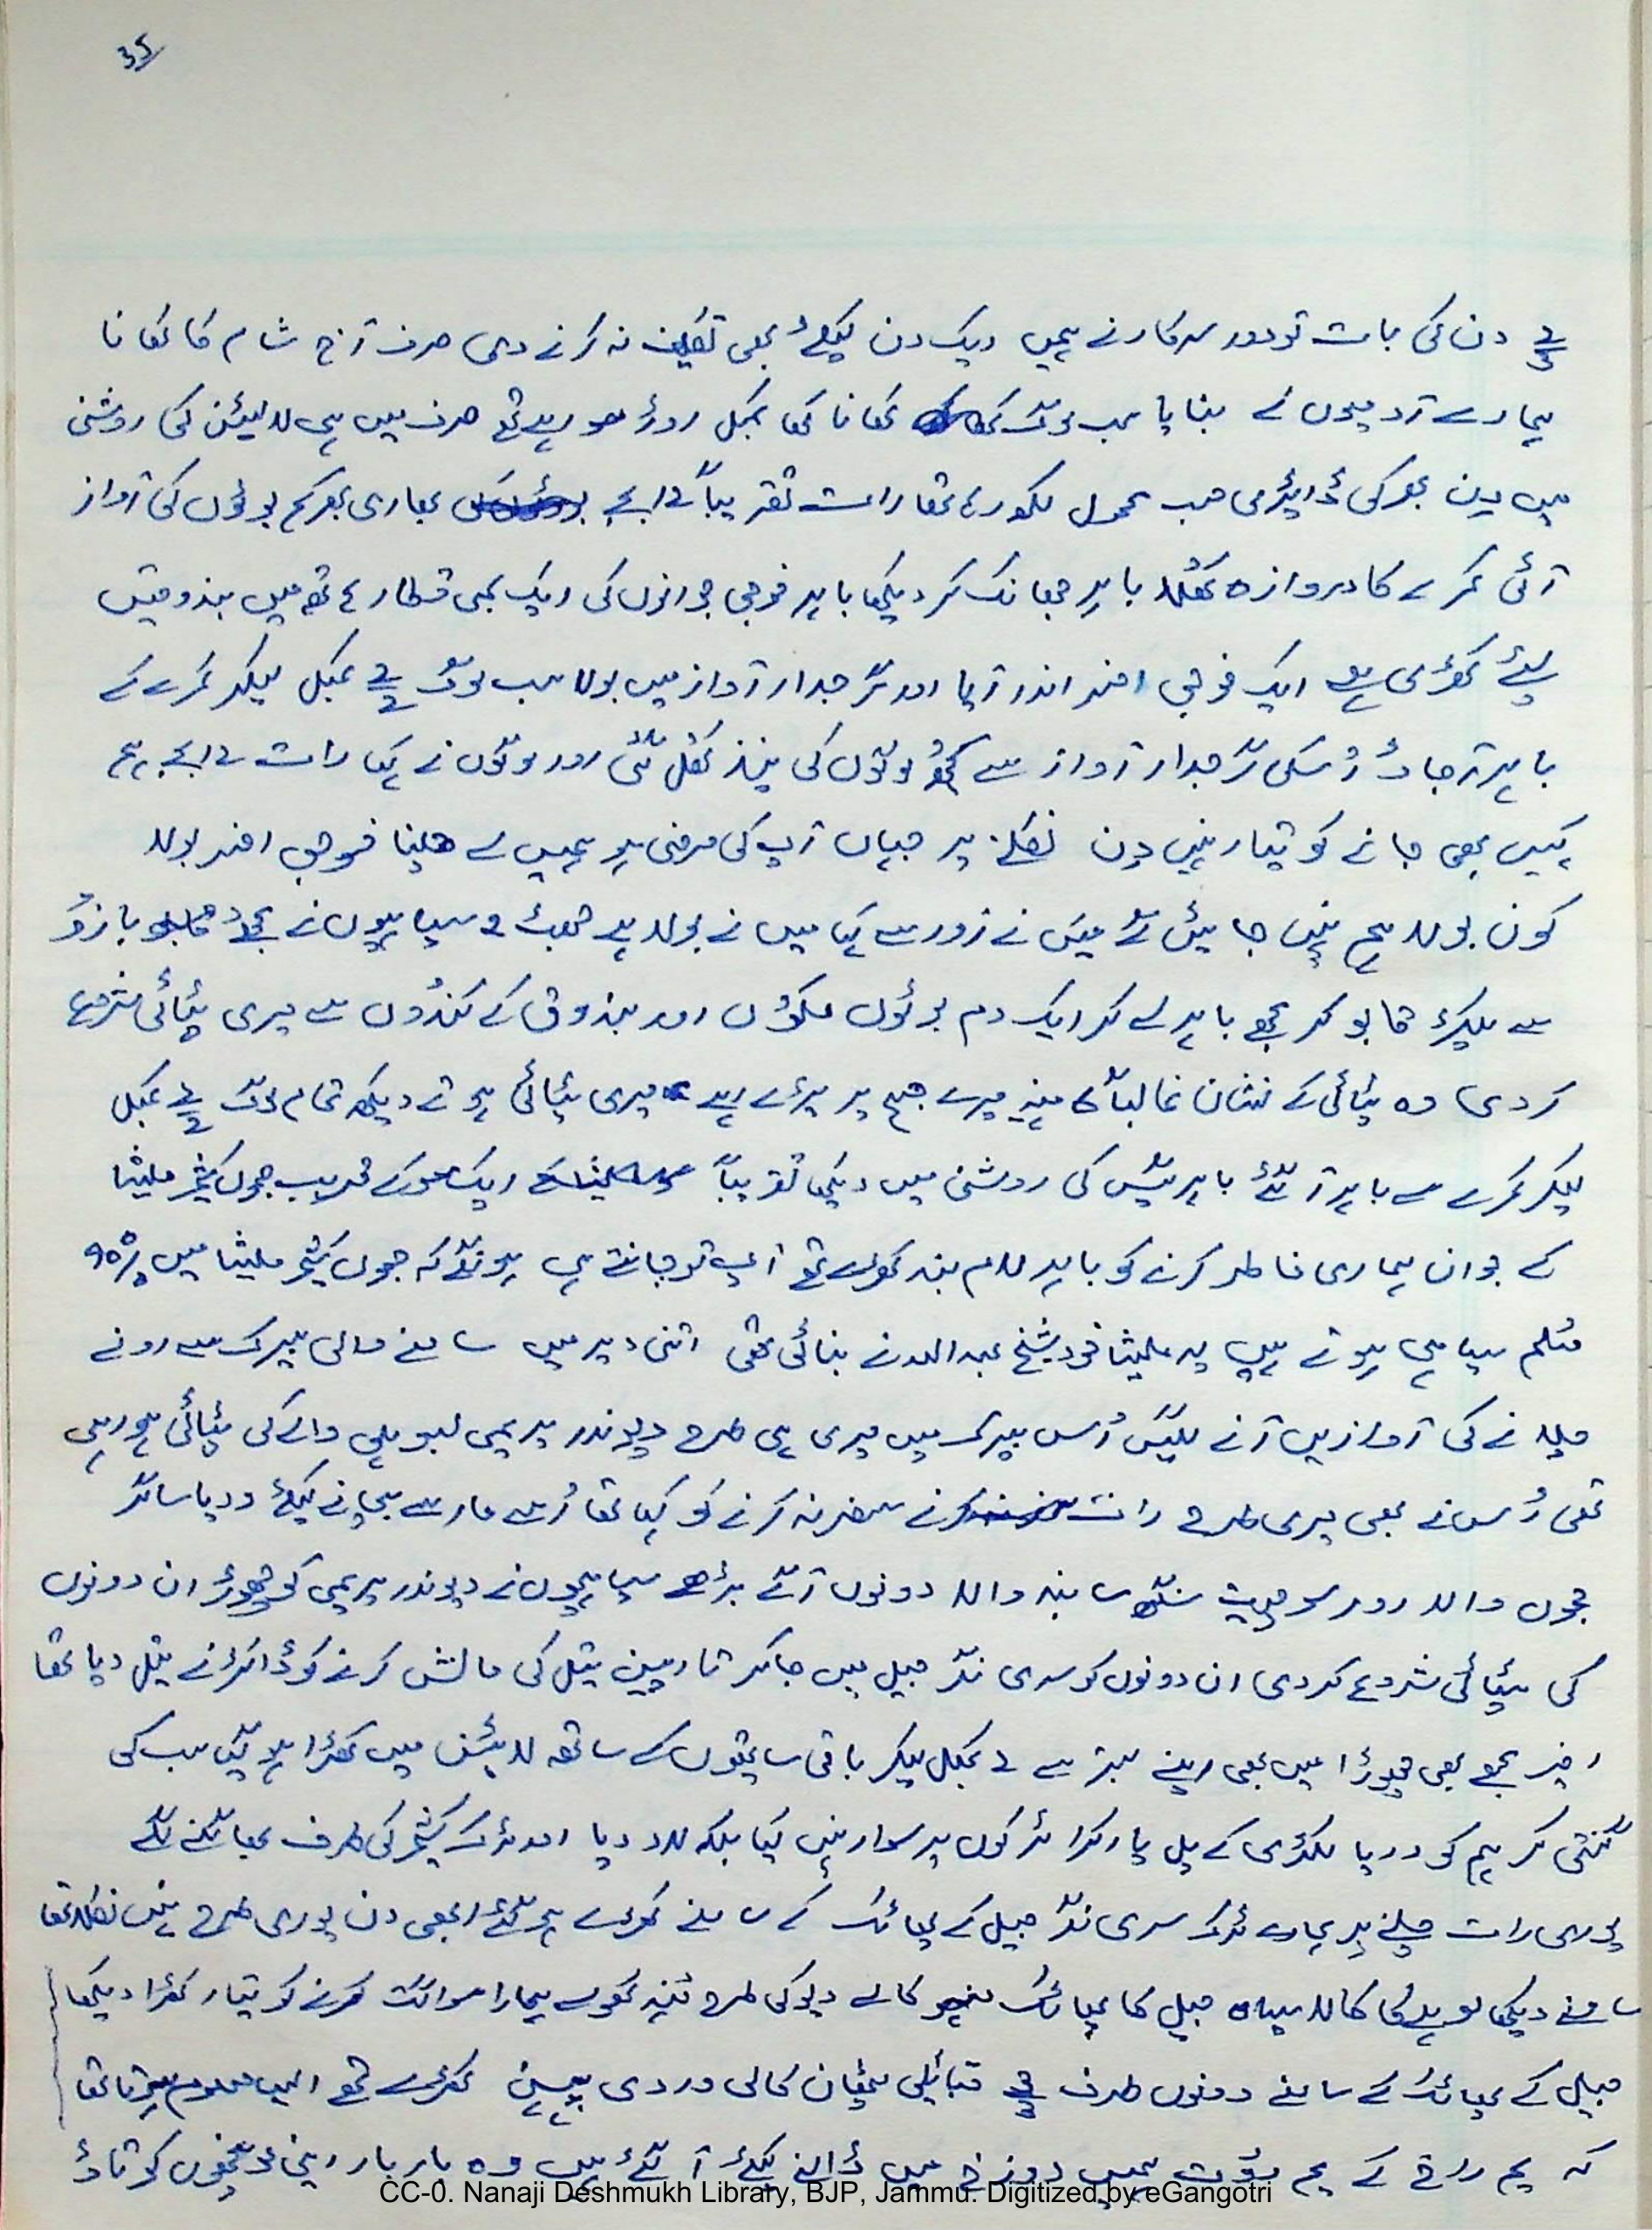 35
2/3 دن کی بات تو دور سرکار نے ہمیں ایک دن کیلئے بھی تکلیف نہ کرنے دی صرف آج شام کا کھانا
ہمارے آدمیوں نے بنایا سب لوگ کھانا کھا کمبل اوڑھ سو رہے تھے صرف میں ہی لالٹین کی روشنی
میں دن بھر کی ڈائری حسب معمول لکھ رہا تھا رات تقریباً 10 بجے بھاری بھرکم بوٹوں کی آواز
آئی کمرے کا دروازہ کھلا باہر جھانک کر دیکھا باہر فوجی جوانوں کی ایک لمبی قطار ہاتھ میں بندوقیں
لئے کھڑی ہے ایک فوجی افسر اندر آیا اور گرجدار آواز میں بولا سب لوگ 2/2 کمبل لیکر کمرے کے
باہر آ جاؤ اُسکی گرجدار آواز سے کچھ لوگوں کی نیند کھل گئی اور لوگوں نے کہا رات 10 بجے ہم
کہیں بھی جانے کو تیار نہیں دن نکلنے پر جہاں آپ کی مرضی ہو ہمیں لے چلنا فوجی افسر بولا
کون بولا ہم نہیں جائیں گے میں نے زور سے کہا میں نے بولا ہے جھٹ 2 سپاہیوں نے مجھے بازو
سے پکڑ قابو کر مجھے باہر لے کر ایک دم بوٹوں مکوں اور بندوق کے کندوں سے میری پٹائی شروع
کر دی وہ پٹائی کے نشان غالباً مہینہ میرے جسم پر پڑے رہے میری پٹائی ہوتے دیکھ تمام لوگ 2/2 کمبل
لیکر کمرے سے باہر آ گئے باہر گیس کی روشنی میں دیکھا تقریباً ایک سو کے قریب جموں کشمیر ملیشا
کے جوان ہماری خاطر کرنے کو باہر لام بند کھڑے تھے آپ تو جانتے ہی ہونگے کہ جموں کشمیر ملیشا میں 90%
مسلم سپاہی ہوتے ہیں یہ ملیشا خود شیخ عبداللہ نے بنائی تھی اتنی دیر میں سامنے والی بیرک سے رونے
چلانے کی آوازیں آنے لگیں اُس بیرک میں میری ہی طرح دیوندر پریمی والے کی پٹائی ہو رہی
تھی اُس نے بھی میری طرح رات سفر نہ کرنے کو کہا تھا اُسے مار سے بچانے کیلئے ودیا ساگر
جموں والا اور سوہیت سنگھ سانبہ والا دونوں آگے بڑھے سپاہیوں نے دیوندر پریمی کو چھوڑ ان دونوں
کی پٹائی شروع کر دی ان دونوں کو سری نگر جیل میں جا کر تارپین تیل کی مالش کرنے کو ڈاکٹر نے تیل دیا تھا
اخیر مجھے بھی چھوڑا میں بھی اپنے بستر سے 2 کمبل لیکر باقی ساتھیوں کے ساتھ لائن میں کھڑا ہو گیا سب کی
گنتی کر ہم کو دریا لکڑی کے پل پار کرا ٹرکوں پر سوار نہیں کیا بلکہ لاد دیا اور ٹرک کشمیر کی طرف بھاگنے لگے
پوری رات چلنے پر ہمارے ٹرک سری نگر جیل کے پھاٹک کے سامنے کھڑے ہو گئے ابھی دن پوری طرح نہیں نکلا تھا
سامنے دیکھا لوہے کا کالا سیاہ جیل کا پھاٹک کالے دیو کی طرح منہ کھولے ہمارا سواگت کرنے کو تیار کھڑا دیکھا
جیل کے پھاٹک کے سامنے دونوں طرف 3/3 قبائلی پٹھان کالی وردی پہنے کھڑے تھے ایسے معلوم ہوتا تھا
کہ یم راج کے یم دوت ہمیں دوزخ میں ڈالنے کیلئے آ گئے ہیں وہ بار بار اپنی مونچھوں کو تاؤ
CC-0. Nanaji Deshmukh Library, BJP, Jammu. Digitized by eGangotri